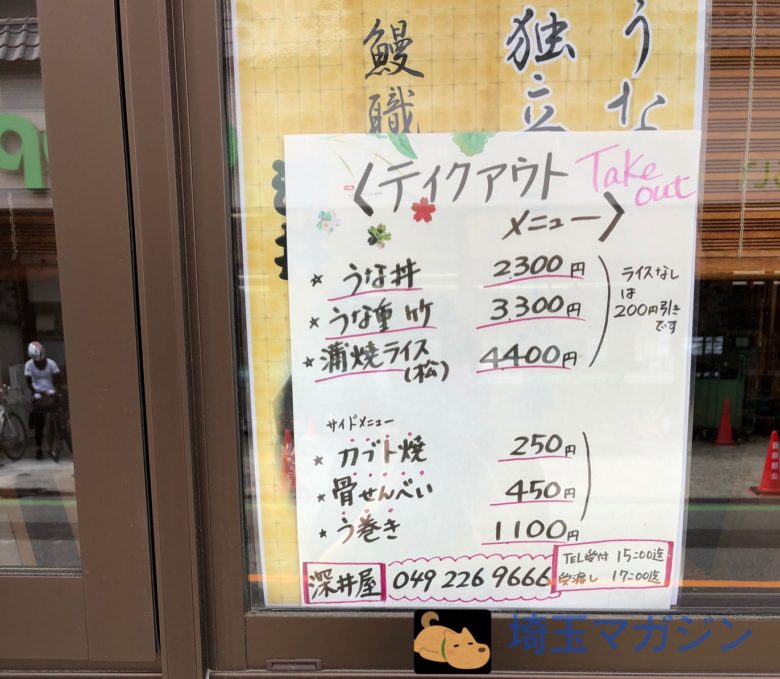 うな
独立
鰻職
〈テイクアウト
Take out
メニュー〉
★ うな丼 2300円
★ うな重 竹 3300円
★ 蒲焼ライス(松) 4400円
ライスなし
は
200円引き
です
サイドメニュー
★ カブト焼 250円
★ 骨せんべい 450円
★ う巻き 1100円
深井屋 049 226 9666
TEL受付 15:00迄
受渡し 17:00迄
埼玉マガジン